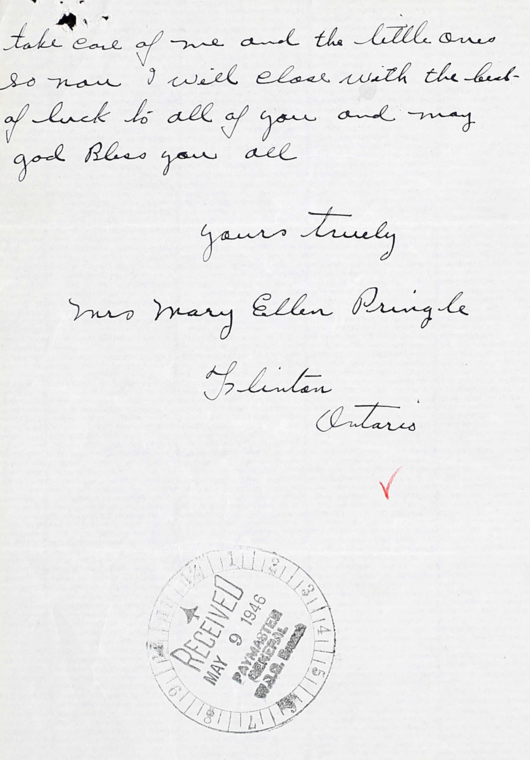 take care of me and the little ones
so now I will close with the best
of luck to all of you and may
god Bless you all
yours truely
Mrs Mary Ellen Pringle
Flinton
Ontario
RECEIVED
MAY 9 1946
PAYMASTER
GENERAL
1
2
3
4
15
16
17
18
19